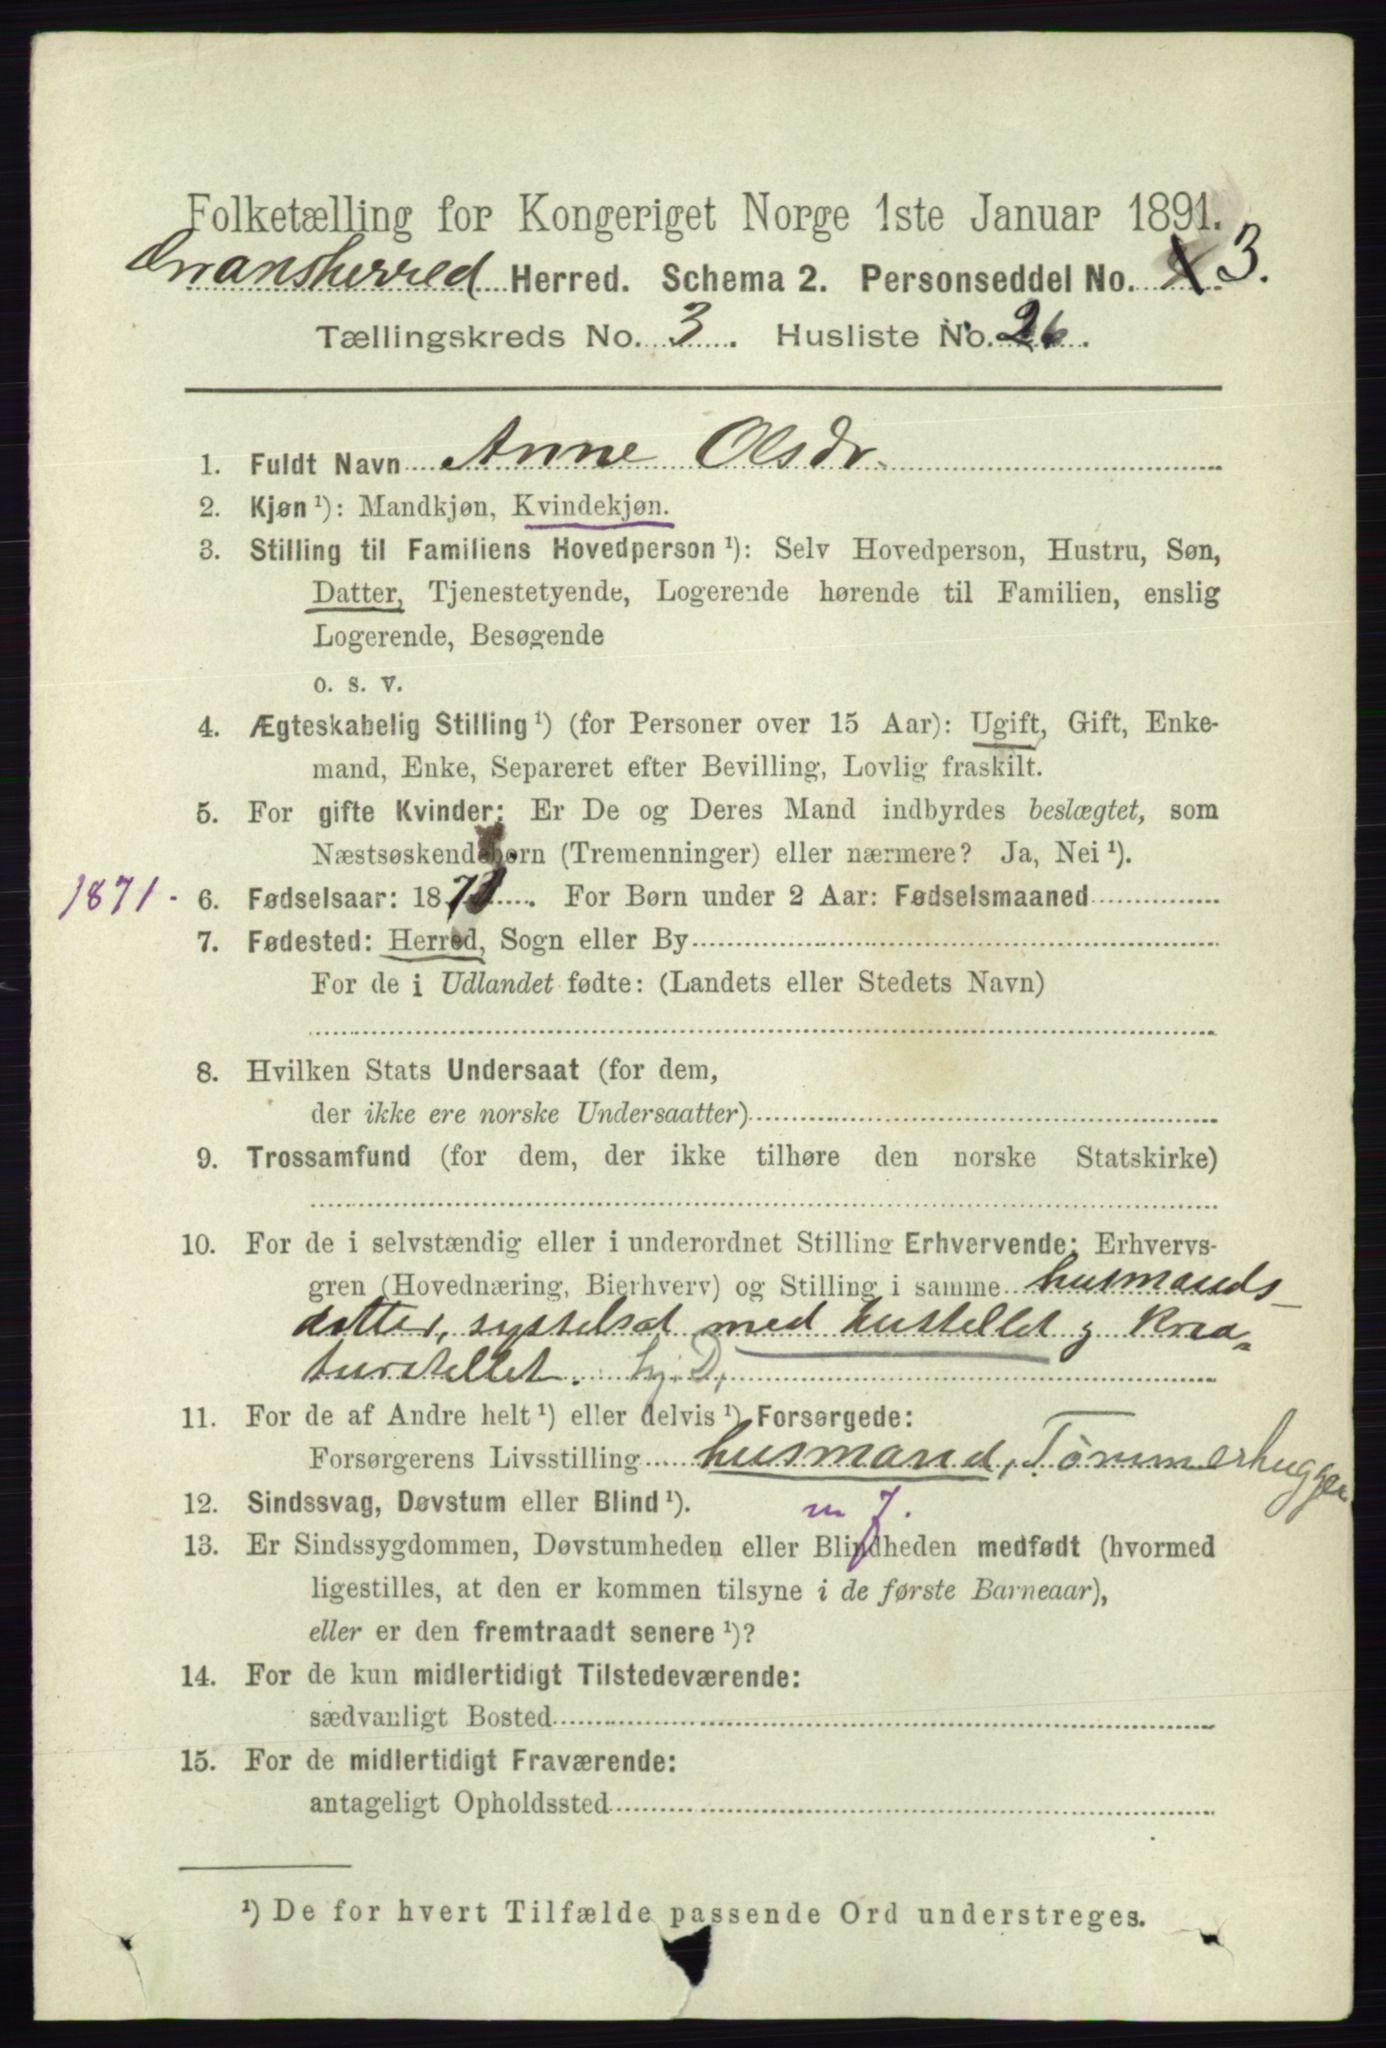 Folketælling for Kongeriget Norge 1ste Januar 1891.
Gransherred Herred. Schema 2. Personseddel No. 3.
Tællingskreds No. 3. Husliste No. 26.
1. Fuldt Navn Anne Olsdr.
2. Kjøn ¹): Mandkjøn, Kvindekjøn.
3. Stilling til Familiens Hovedperson ¹): Selv Hovedperson, Hustru, Søn,
Datter, Tjenestetyende, Logerende hørende til Familien, enslig
Logerende, Besøgende
o. s. v.
4. Ægteskabelig Stilling ¹) (for Personer over 15 Aar): Ugift, Gift, Enke-
mand, Enke, Separeret efter Bevilling, Lovlig fraskilt.
5. For gifte Kvinder: Er De og Deres Mand indbyrdes beslægtet, som
Næstsøskendebørn (Tremenninger) eller nærmere? Ja, Nei ¹).
1871. 6. Fødselsaar: 1871. For Børn under 2 Aar: Fødselsmaaned
7. Fødested: Herred, Sogn eller By
For de i Udlandet fødte: (Landets eller Stedets Navn)
8. Hvilken Stats Undersaat (for dem,
der ikke ere norske Undersaatter)
9. Trossamfund (for dem, der ikke tilhøre den norske Statskirke)
10. For de i selvstændig eller i underordnet Stilling Erhvervende: Erhvervs-
gren (Hovednæring, Bierhverv) og Stilling i samme husmands-
datter, sysselsat med hustellet og Krea-
turstellet. hj. D,
11. For de af Andre helt ¹) eller delvis ¹) Forsørgede:
Forsørgerens Livsstilling husmand, Tømmerhugger
12. Sindssvag, Døvstum eller Blind ¹). m f.
13. Er Sindssygdommen, Døvstumheden eller Blindheden medfødt (hvormed
ligestilles, at den er kommen tilsyne i de første Barneaar),
eller er den fremtraadt senere ¹)?
14. For de kun midlertidigt Tilstedeværende:
sædvanligt Bosted
15. For de midlertidigt Fraværende:
antageligt Opholdssted
¹) De for hvert Tilfælde passende Ord understreges.